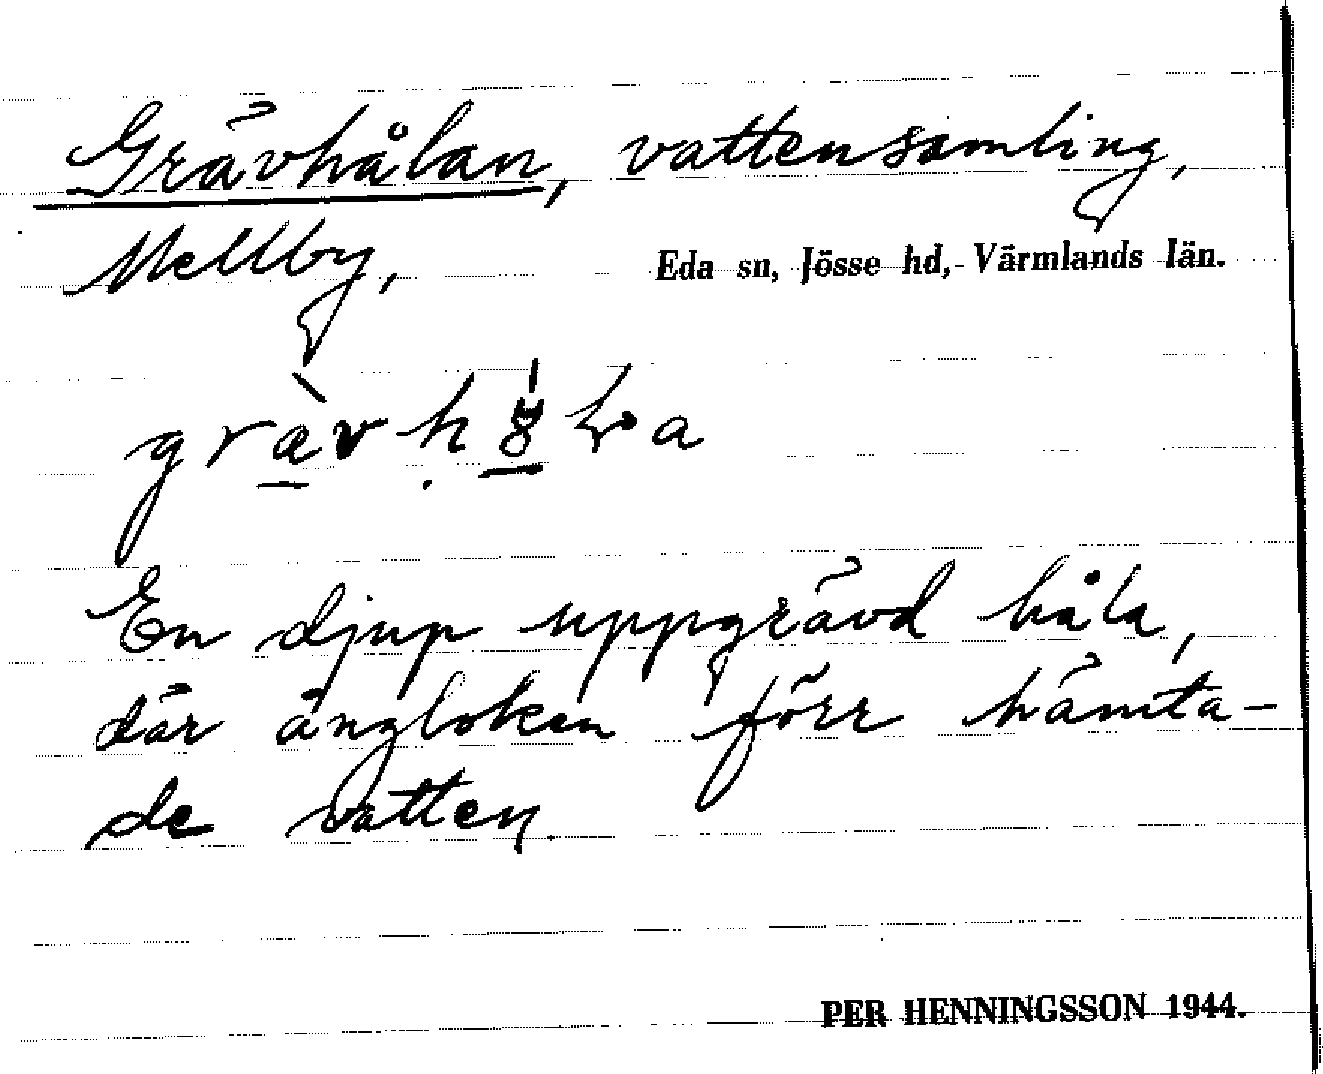 Grävhålan, vattensamling,
Mellby, Eda sn, Jösse hd, Värmlands län.
En djup uppgrävd håla,
där ångloken förr hämta-
de vatten.
PER HENNINGSSON 1944.